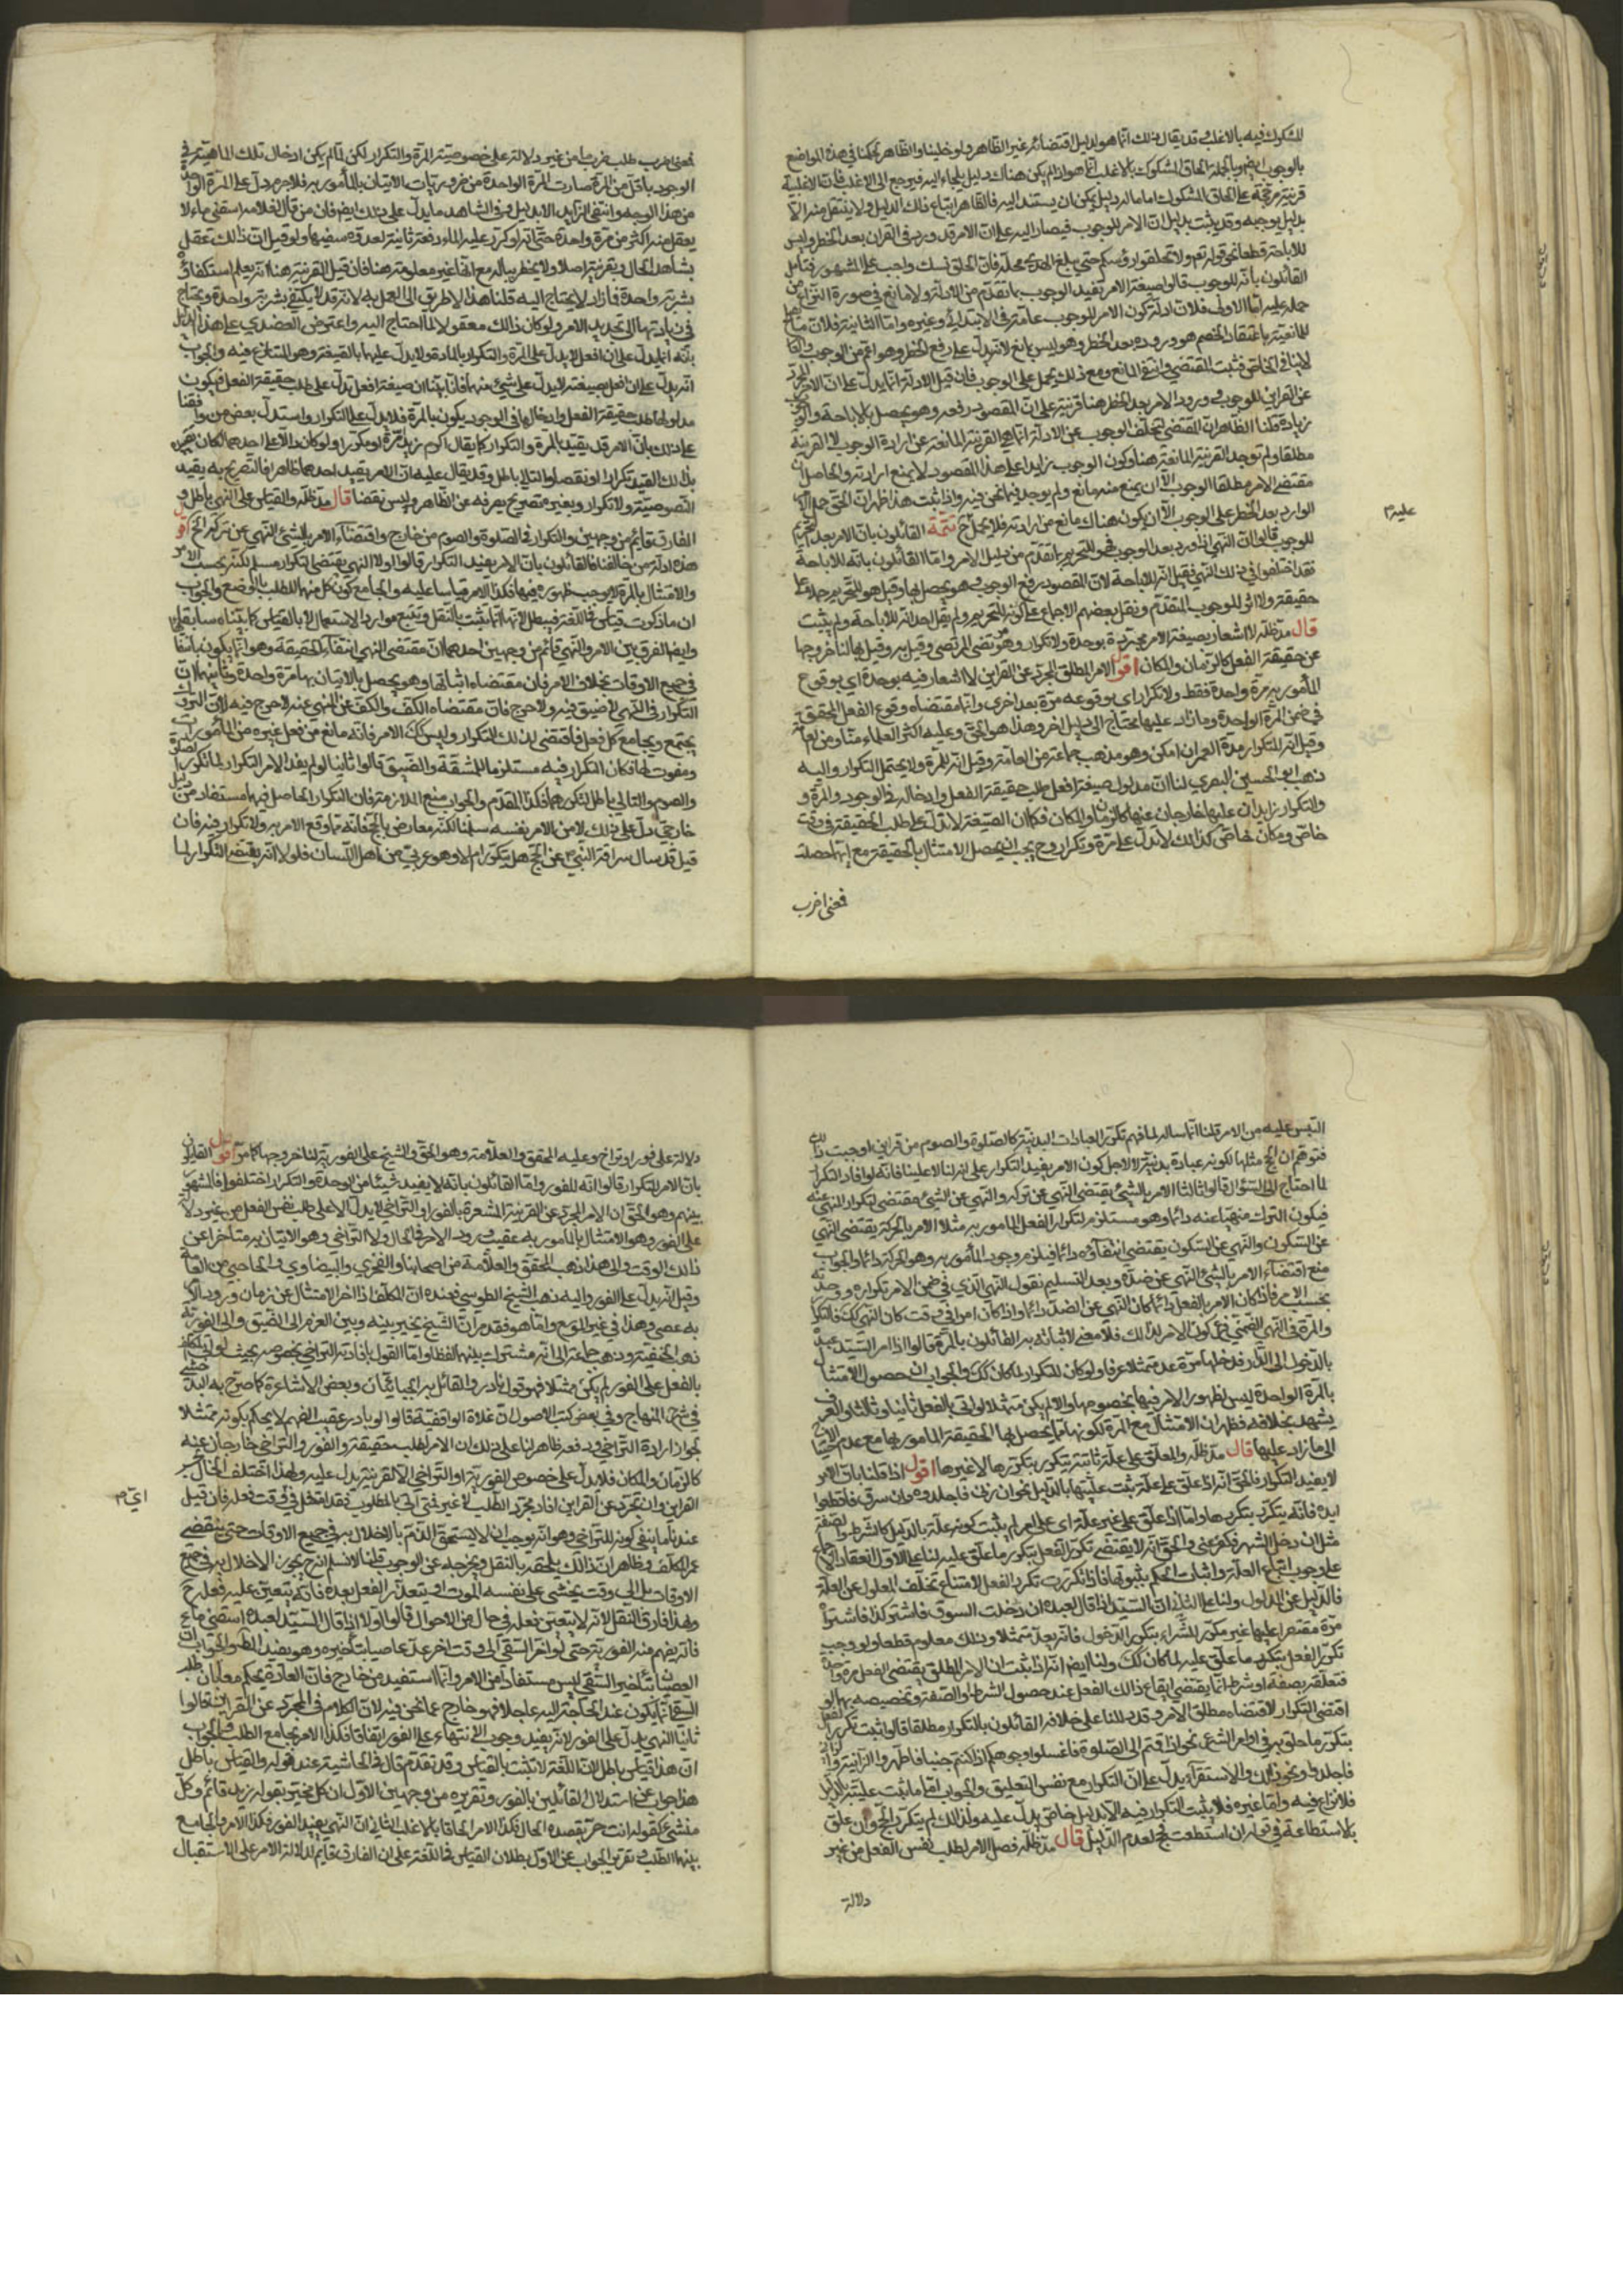 للمشكوك فيه بالاغلب وقد يقال ذلك انما هو لدليل اقتضائه غير الظاهر ولو خلينا والظاهر لحكمنا في هذه المواضع
بالوجوب ايضا وبالجملة الحاق المشكوك بالاغلب انما هو اذا لم يكن هناك دليل يلجاء اليه فيرجع الى الاغلب فان الاغلبية
قرينة مرجحة على الحاق المشكوك اما ما له دليل يمكن ان يستند اليه فالظاهر اتباع ذلك الدليل ولا ينتقل منه الا
بدليل يوجبه وقد يثبت بدليل ان الامر للوجوب فيصار اليه على ان الامر قد ورد في القران بعد الحظر وليس
للاباحة قطعا نحو قوله تعم ولا تحلقوا رؤسكم حتى يبلغ الهدي محله فان الحلق نسك واجب على المشهور فتامل
القائلون بانه للوجوب قالوا صيغة الامر تفيد الوجوب بما تقدم من الادلة ولا مانع في صورة النزاع من
حمله عليه اما الاولى فلان ادلة كون الامر للوجوب عامة في الابتدائي وغيره واما الثانية فلان ما
للمانعية باعتقاد الخصم هو وروده بعد الحظر وهو ليس بمانع لانه يدل على رفع الحظر وهو اعم من الوجوب والعام
لا ينافي الخاص فثبت المقتضي وانتفى المانع ومع ذلك يحمل على الوجوب فان قيل الادلة انما يدل على ان الامر المجرد
عن القراين للوجوب وورود الامر بعد الحظر هنا قرينة على ان المقصود رفعه وهو يحصل بالاباحة والوجوب
زيادة قلنا الظاهر ان المقتضي لتخلف الوجوب عن الادلة انما هي القرينة المانعة عن ارادة الوجوب لا القرينة
مطلقا ولم توجد القرينة المانعية هنا وكون الوجوب زايدا على هذا المقصود لا يمنع ارادته والحاصل ان
مقتضى الامر مطلقا الوجوب الا ان يمنع منه مانع ولم يوجد فيما نحن فيه واذا ثبت هذا ظهر ان الحق حمل الامر
الوارد بعد الحظر على الوجوب الا ان يكون هناك مانع من ارادته فلا يحمل ح تتمة القائلون بان الامر بعد التحريم
للوجوب قالوا ان النهي اذا ورد بعد الوجوب فهو للتحريم بما تقدم من دليل الامر واما القائلون بانه للاباحة
فقد اختلفوا في ذلك النهي فقيل انه للاباحة لان المقصود رفع الوجوب وهو يحصل بها وقيل هو للتحريم حملا على
حقيقته ولا اثر للوجوب المتقدم ونقل بعضهم الاجماع على كونه للتحريم ولم يقل احد انه للاباحة ولم يثبت
قال مد ظله لا اشعار بصيغة الامر مجردة بوحدة ولا تكرار وهو مرتضى المرتضى وقيل به وقيل بها لنا خروجها
عن حقيقة الفعل كالزمان والمكان اقول الامر المطلق المجرد عن القراين لا اشعار فيه بوحدة اي بوقوع
المأمور به مرة واحدة فقط ولا تكرار اي بوقوعه مرة بعد اخرى وانما مقتضاه وقوع الفعل المحقق
في ضمن المرة الواحدة وما زاد عليها محتاج الى دليل اخر وهذا هو الحق وعليه اكثر العلماء منا ومن العامة
وقيل انه للتكرار مدة العمر ان امكن وهو مذهب جماعة من العامة وقيل انه للمرة ولا يحتمل التكرار واليه
ذهب ابو الحسين البصري لنا ان مدلول صيغة افعل طلب حقيقة الفعل وادخاله في الوجود والمرة و
والتكرار زايدان عليها خارجان عنها كالزمان والمكان فكما ان الصيغة لا تدل على طلب الحقيقة في وقت
خاص ومكان خاص كذلك لا تدل على مرة وتكرار وح يجب ان يحصل الامتثال بالحقيقة مع ايها حصلت
فمعنى اضرب
عليه م
فمعنى اضرب طلب ضرب ما من غير دلالة على خصوصية المرة والتكرار لكن لما لم يكن ادخال تلك الماهية في
الوجود باقل من المرة صارت المرة الواحدة من ضروريات الاتيان بالمأمور به فلا جرم دل على المرة الواحدة
من هذا الوجه وانتفى الزايد الا بدليل وفي الشاهد ما يدل على ذلك ايضا فان من قال لغلامه اسقني ماء لا
يعقل منه اكثر من مرة واحدة حتى انه لو كرر عليه الماء دفعة ثانية لعده سفيها ولو قيل ان ذلك تعقل
بشاهد الحال وبقرينة اصلا ولا يخطر بباله مع انها غير معلومة هنا فان قيل القرينة هنا انه يعلم استكفائه
بشربة واحدة فما زاد لا يحتاج اليه قلنا هذا لا طريق الى العمل به لانه قد لا يكتفي بشربة واحدة ويحتاج
في زيادتها الى تجديد الامر ولو كان ذلك معقولا لما احتاج اليه واعترض العضدي على هذا الدليل
بانه انما يدل على ان افعل لا يدل على المرة والتكرار بالمادة ولا يدل عليها بالصيغة وهو المتنازع فيه والجواب
انه يدل على ان افعل بصيغته لا يدل على شيء منهما فانا بينا ان صيغة افعل تدل على طلب حقيقة الفعل فيكون
مدلولها طلب حقيقة الفعل وادخالها في الوجود يكون بالمرة فلا يدل على التكرار واستدل بعض من وافقنا
على ذلك بان الامر قد يقيد بالمرة والتكرار كما يقال اكرم زيدا مرة او مكررا ولو كان دالا على احدهما لكان تقييده
بذلك القيد تكرارا او نقضا والتالي باطل وقد يقال عليه ان الامر يفيد احدهما ظاهرا فالتصريح به يفيد
النصوصية ولا تكرار وبغيره تصريح بصرفه عن الظاهر وليس نقضا قال مد ظله والقياس على النهي باطل و
الفارق قايم من وجهين والتكرار في الصلوة والصوم من خارج واقتضاء الامر بالشيء النهي عن تركه الخ اقول
هذه ادلة من خالفنا فالقائلون بان الامر يفيد التكرار قالوا اولا النهي يقتضي التكرار مسلم لكنه بحسب الامر
والامتثال بالمرة لا يوجب ظهوره فيها فكذا الامر قياسا عليه والجامع كون كل منهما للطلب بالوضع والجواب
ان ما ذكرت قياس في اللغة فيبطل لانها انما تثبت بالنقل وتتبع موارد الاستعمال لا بالقياس كما بيناه سابقا
وايضا الفرق بين الامر والنهي قائم من وجهين احدهما ان مقتضى النهي انتفاء الحقيقة وهو انما يكون بانتفائها
في جميع الاوقات بخلاف الامر فان مقتضاه اثباتها وهو يحصل بالاتيان بها مرة واحدة وثانيهما ان
التكرار في النهي لا ضيق فيه ولا حرج فان مقتضاه الكف والكف عن المنهي عنه لا حرج فيه لان التروك
يجتمع ويجامع كل فعل فاقتضى لذلك التكرار وليس كك الامر فانه مانع من فعل غيره من المأمورات
ومفوت لها فكان التكرار فيه مستلزما للمشقة والضيق قالوا ثانيا لو لم يفد الامر التكرار لما تكرر الصلوة
والصوم والتالي باطل لتكررهما فكذا المقدم والجواب منع الملازمة فان التكرار الحاصل فيهما مستفاد من دليل
خارجي دل على ذلك لا من الامر نفسه سلمنا لكنه معارض بالحج فانه مما وقع الامر به ولا تكرار فيه فان
قيل قد سال سراقة النبي ص عن الحج هل يتكرر ام لا وهو عربي من اهل اللسان فلولا انه يقتضي التكرار لما
التبس عليه من الامر قلنا انما ساله لما فهم تكرر العبادات البدنية كالصلوة والصوم من قراين اوجبت ذلك
فتوهم ان الحج مثلها لكونه عبادة بدنية لا لاجل كون الامر يفيد التكرار على انه لنا لا علينا فانه لو افاد التكرار
لما احتاج الى السؤال قالوا ثالثا الامر بالشيء يقتضي النهي عن تركه والنهي عن الشيء مقتضى لتكرار المنهي عنه
فيكون الترك منهيا عنه دائما وهو مستلزم لتكرار الفعل المامور به مثلا الامر بالحركة يقتضي النهي
عن السكون والنهي عن السكون يقتضي انتفاؤه دائما فيلزم وجوب المأمور به وهو الحركة دائما والجواب
منع اقتضاء الامر بالشيء النهي عن ضده وبعد التسليم نقول النهي الذي في ضمن الامر تكراره ووحدته
بحسب الامر فاذا كان الامر بالفعل دائما كان النهي عن الضد دائما واذا كان امرا في وقت كان النهي كك فالتكرار
والمرة في النهي الضمني فرع كون الامر كذلك فلا معنى لاثباته به القائلون بالمرة قالوا اذا امر السيد عبده
بالدخول الى الدار فدخلها مرة عد متمثلا عرفا ولو كان للتكرار لما كان كك والجواب ان حصول الامتثال
بالمرة الواحدة ليس لظهور الامر فيها بخصوصها والا لم يكن متمثلا لو اتى بالفعل ثانيا وثالثا والعرف
يشهد بخلافه فظهر ان الامتثال مع المرة لكونها مما يحصل لها الحقيقة المامور بها مع عدم الاحتياج
الى ما زاد عليها قال مد ظله والمعلق على علة ثابتة يتكرر بتكررها لا غيرها اقول اذا قلنا بان الامر
لا يفيد التكرار فالحق انه اذا علق على علة ثبت عليتها بالدليل نحو ان زنى فاجلدوه وان سرق فاقطعوا
ايده فانه يتكرر بتكررها واما اذا علق على غير علة اي على امر لم يثبت كونه علة بالدليل كالشرط والصفة
مثل ان دخل الشهر فكفر عني والحق انه لا يقتضي تكرر الفعل بتكرر ما علق عليه لنا على الاول انعقاد الاجماع
على وجوب اتباع العلة واثبات الحكم بثبوتها فاذا تكررت تكرر الفعل لامتناع تخلف المعلول عن العلة
فالدليل عن المدلول ولنا على الثاني ان السيد اذا قال لعبده ان دخلت السوق فاشتر كذا فاشتراه
مرة مقتصرا عليها غير مكرر للشراء بتكرر الدخول فانه يعد متمثلا وذلك معلوم قطعا ولو وجب
تكرر الفعل بتكرر ما علق عليه لما كان كك ولنا ايضا انه اذا ثبت ان الامر المطلق يقتضي الفعل مرة واحدة
فتعلقه بصفة او شرط انما يقتضي ايقاع ذلك الفعل عند حصول الشرط والصفة وتخصيصه بهما ولو
اقتضى التكرار لاقتضاه مطلق الامر وقد دللنا على خلافه القائلون بالتكرار مطلقا قالوا ثبت تكرر الفعل
بتكرر ما علق به في اوامر الشرع نحو اذا قمتم الى الصلوة فاغسلوا وجوهكم اذا كنتم جنبا فاطهروا الزانية والزاني
فاجلدوا ونحو ذلك والاستقراء يدل على ان التكرار مع نفس التعليق والجواب اما ما ثبت عليته بالدليل
فلا نزاع فيه واما غيره فلا يثبت التكرار فيه الا بدليل خاص يدل عليه ولذلك لم يتكرر الحج وان علق
بالاستطاعة في قوله ان استطعت فحج لعدم الدليل قال مد ظله فصل الامر لطلب نفس الفعل من غير
دلالة
دلالة على فور او تراخ وعليه المحقق والعلامة وهو الحق والشيخ على الفورية لنا خروجها كما مر اقول القايلون
بان الامر للتكرار قالوا انه للفور واما القائلون بانه لا يفيد شيئا من الوحدة والتكرار اختلفوا فالمشهور
بينهم وهو الحق ان الامر المجرد عن القرينة المشعرة بالفور او التراخي لا يدل الا على طلب نفس الفعل من غير دلالة
على الفور وهو الامتثال بالمأمور به عقيب ورود الامر في الحال ولا التراخي وهو الاتيان به متأخرا عن
ذلك الوقت والى هذا ذهب المحقق والعلامة من اصحابنا والفخري والبيضاوي والحاجبي من العامة
وقيل انه يدل على الفور واليه ذهب الشيخ الطوسي فعنده ان المكلف اذا اخر الامتثال عن زمان ورود الامر
به عصى وهذا في غير الموسع واما هو فقد مر ان الشيخ يخير بينه وبين العزم الى الضيق والى الفورية
ذهب الحنفية وذهب جماعة الى انه مشترك بينهما لفظا واما القول بافادته التراخي بخصوصه بحيث لو اتى المكلف
بالفعل على الفور لم يكن ممتثلا فهو قول نادر والقائل به الجبائيان وبعض الاشاعرة كما صرح به البدخشي
في شرح المنهاج وفي بعض كتب الاصول ان غلاة الواقفية قالوا لو بادر عقيب الفهم لا يحكم بكونه ممتثلا
لجواز ارادة التراخي ودفعه ظاهر لنا على ذلك ان الامر لطلب حقيقته والفور والتراخي خارجان عنه
كالزمان والمكان فلا يدل على خصوص الفورية او التراخي الا لقرينة يدل عليه ولهذا اختلف الحال بحسب
القراين وان تجرد عن القراين افاد مجرد الطلب لا غير فمتى اتى بالمطلوب فقد امتثل في اي وقت فعله فان قيل
عندنا ما ينفي كونه للتراخي وهو انه يوجب ان لا يستحق الذم بالاخلال به في جميع الاوقات حتى ينقضي
عمر المكلف وظاهر ان ذلك يلحقه بالنقل ويخرجه عن الوجوب قلنا لا نسلم انه ح يجوز الاخلال به في جميع
الاوقات بل الى وقت يخشى على نفسه الموت او يتعذر الفعل بعده فانه يتعين عليه فعله ح
وبهذا فارق النفل لانه لا يتعين فعله في حال من الاحوال قالوا اولا اذا قال السيد لعبده اسقني ماء
فانه يفهم منه الفورية حتى لو اخر السقي الى وقت اخر عد عاصيا بتاخيره وهو يفيد المط والجواب ان
العصيان بتاخير السقي ليس مستفادا من الامر وانما استفيد من خارج فان العادة يحكم معه ان طلب
السقي انما يكون عند الحاجة اليه عاجلا فهو خارج عما نحن فيه لان الكلام في المجرد عن القراين قالوا
ثانيا النهي يدل على الفور لانه يفيد وجوب الانتهاء على الفور اتفاقا فكذا الامر بجامع الطلب والجواب
ان هذا قياس باطل لان اللغة لا تثبت بالقياس وقد تقدم قال في الحاشية عند قوله والقياس باطل
هذا جواب عن استدلال القائلين بالفور وتقريره من وجهين الاول ان كل مخبر بقوله زيد قائم وكل
منشئ كقوله انت حر يقصده الحال فكذا الامر الحاقا بالاغلب الثاني ان النهي يفيد الفور فكذا الامر والجامع
بينهما الطلب وتقرير الجواب عن الاول بطلان القياس في اللغة على ان الفارق قايم لدلالة الامر على الاستقبال
اي م